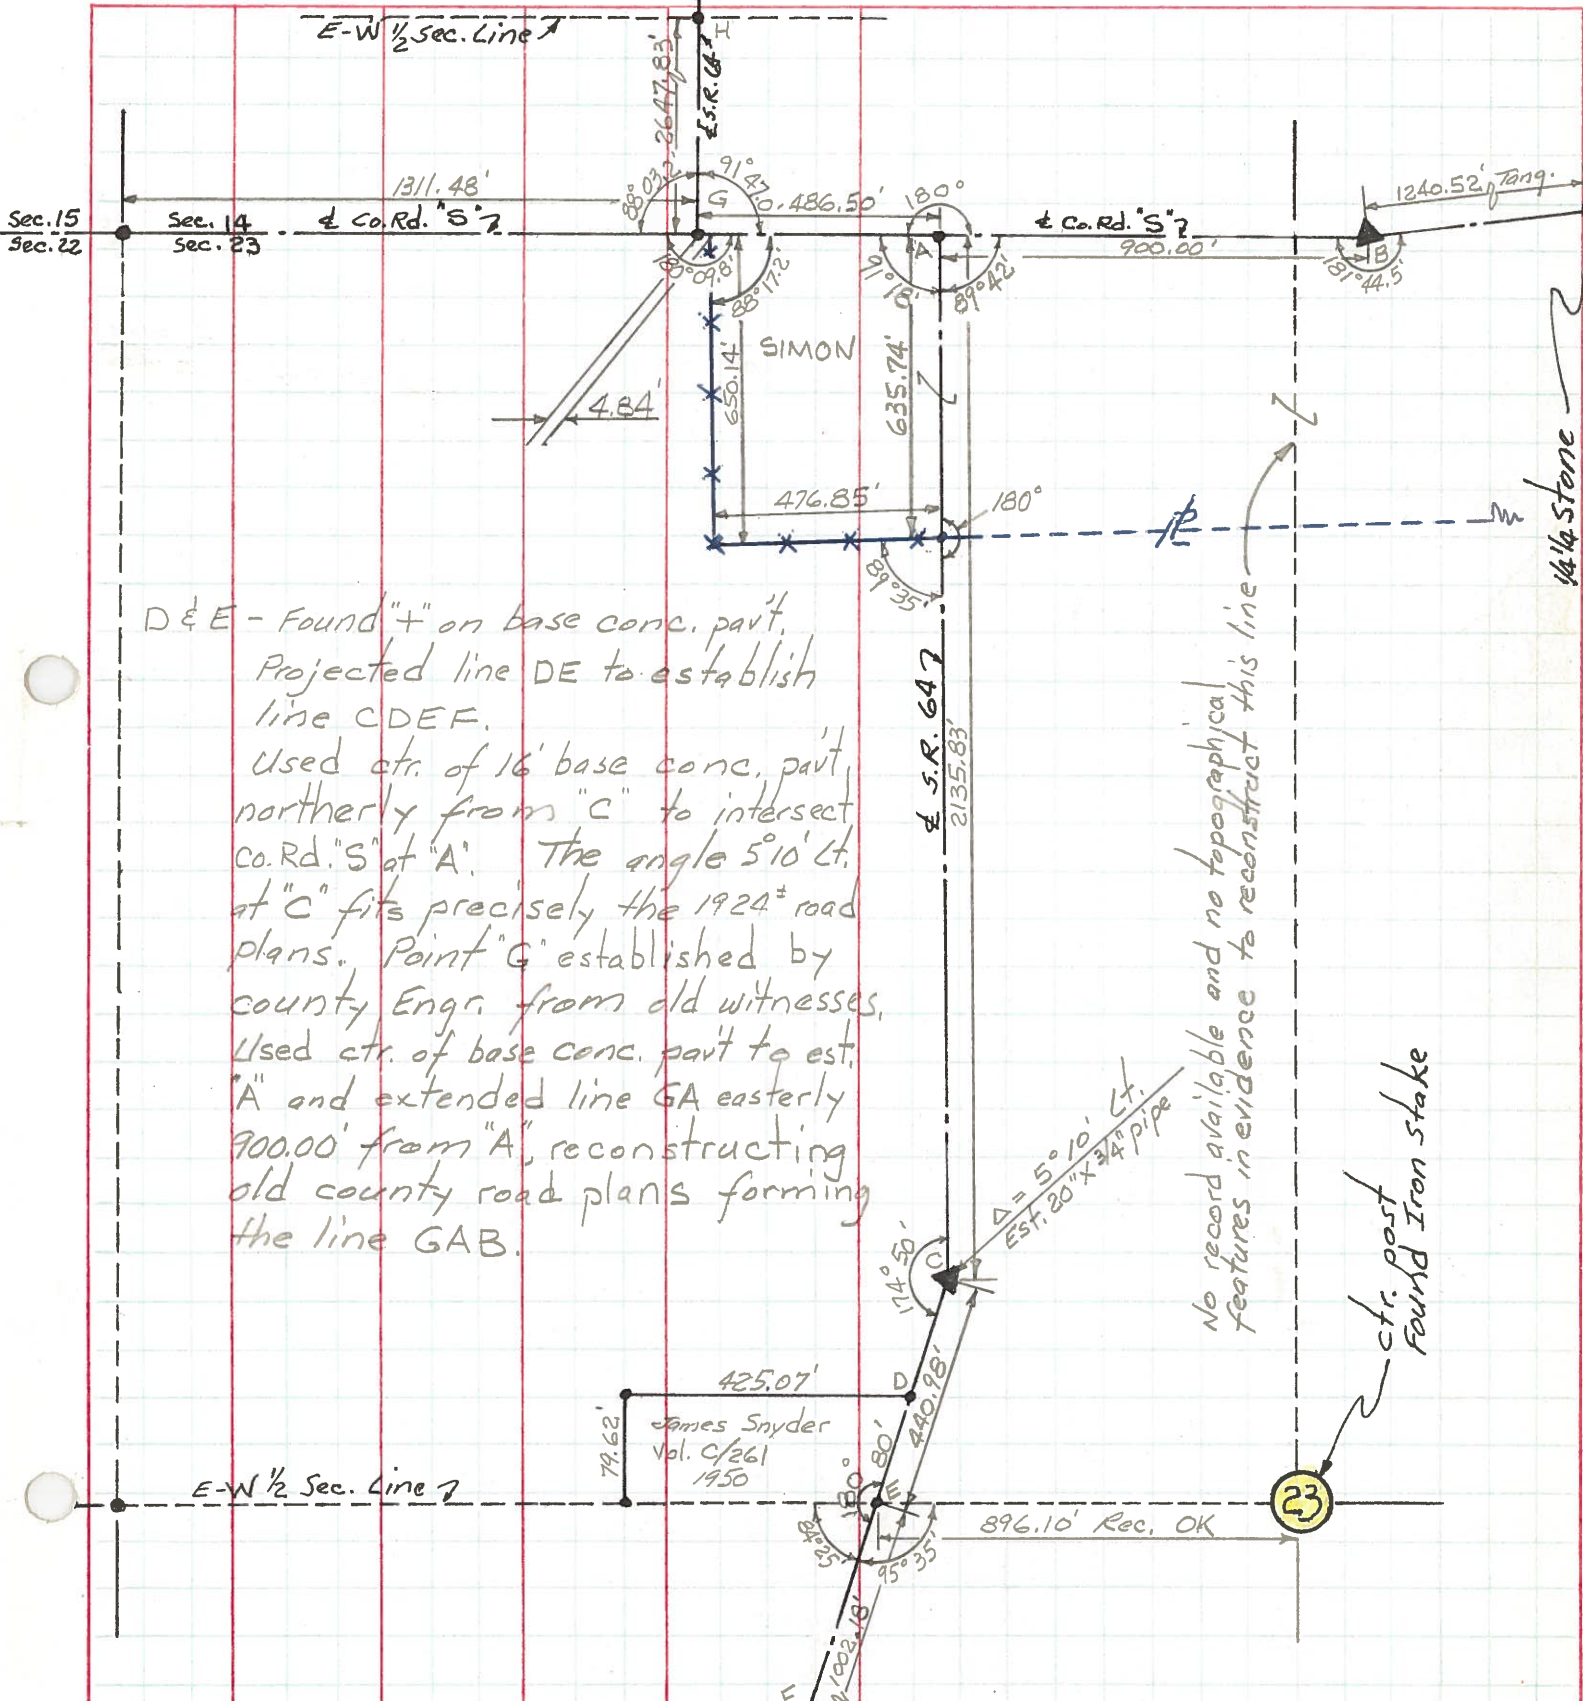 E-W 1/2 Sec. Line
H
2647.83'
℄ S.R. 64
1311.48'
88°03.2'
91°47'
G
486.50'
180°
1240.52' Tang.
Sec. 15
Sec. 22
Sec. 14
Sec. 23
℄ Co. Rd. "S"
℄ Co. Rd. "S"
900.00'
A
B
180°09.8'
88°17.2'
91°18'
89°42'
181°44.5'
SIMON
4.84'
650.14'
635.74'
476.85'
180°
89°35'
1/4 1/4 Stone
D & E - Found "+" on base conc. pav't.
Projected line DE to establish
line CDEF.
Used ctr. of 16' base conc. pav't,
northerly from "C" to intersect
Co. Rd. "S" at "A". The angle 5°10' Lt.
at "C" fits precisely the 1924± road
plans. Point "G" established by
county Engr. from old witnesses.
Used ctr. of base conc. pav't to est.
"A" and extended line GA easterly
900.00' from "A", reconstructing
old county road plans forming
the line GAB.
℄ S.R. 64
2135.83'
No record available and no topographical
features in evidence to reconstruct this line
Δ = 5°10' Lt.
Est. 20" x 3/4" pipe
C
174°50'
ctr. post
Found Iron Stake
D
440.98'
80'
425.07'
79.62'
James Snyder
Vol. C/261
1950
E-W 1/2 Sec. Line
180°
E
84°25'
95°35'
896.10' Rec. OK
23
1002.18'
F